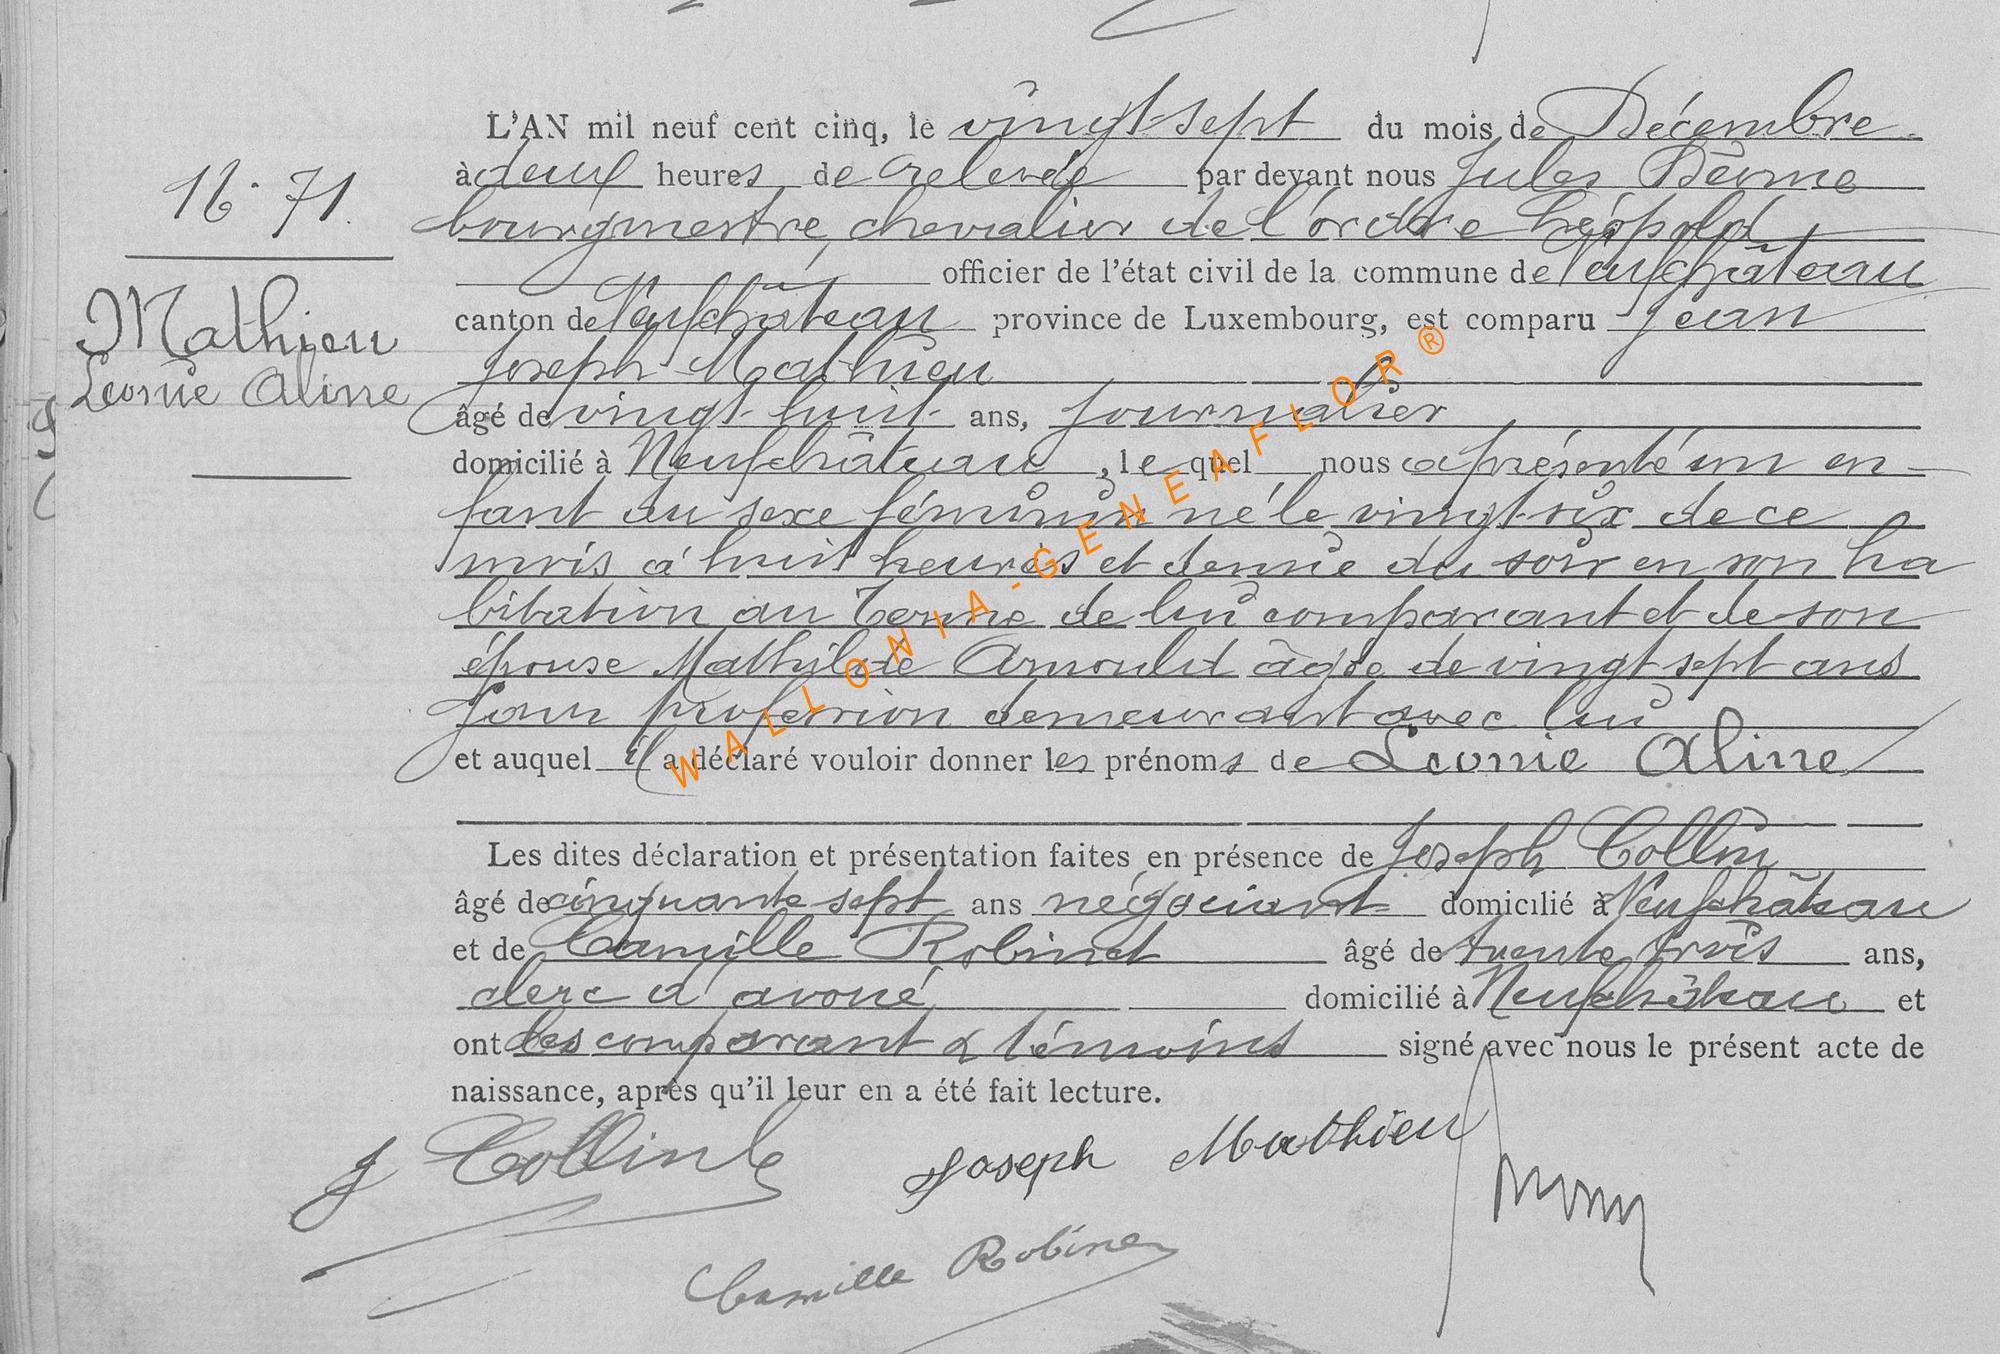 L'AN mil neuf cent cinq, le vingt-sept du mois de Décembre
à deux heures de relevée par devant nous Jules
bourgmestre, chevalier de l'ordre Léopold
officier de l'état civil de la commune de Neufchâteau
canton de Neufchâteau province de Luxembourg, est comparu Jean
Joseph Mathieu
âgé de vingt-huit ans, journalier
domicilié à Neufchâteau, lequel nous a présenté un en-
fant du sexe féminin né le vingt-six de ce
mois à huit heures et demie du soir en son ha
bitation au Terme de lui comparant et de son
épouse Mathilde Arnould âgée de vingt sept ans
sans profession demeurant avec lui
et auquel il a déclaré vouloir donner les prénoms de Léonie Aline
Les dites déclaration et présentation faites en présence de Joseph Collin
âgé de cinquante sept ans négociant domicilié à Neufchâteau
et de Camille Robinet âgé de trente trois ans,
clerc d'avoué domicilié à Neufchâteau et
ont les comparant & témoins signé avec nous le présent acte de
naissance, après qu'il leur en a été fait lecture.
J Collin
Joseph Mathieu
Camille Robinet
N° 71.
Mathieu
Léonie Aline
WALLONIA-GENEAFLOR®